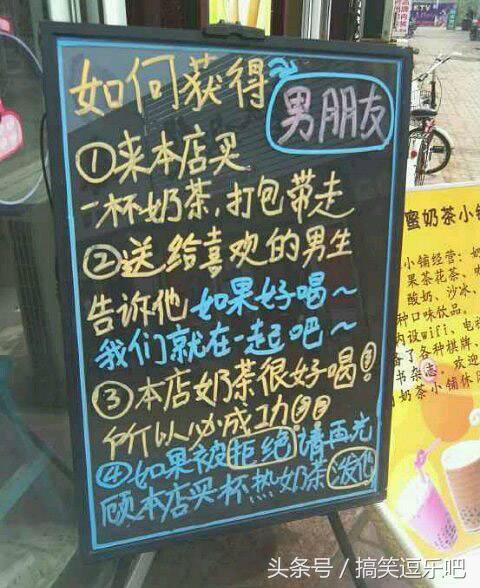 如何获得~
男朋友
①来本店买
一杯奶茶,打包带走
②送给喜欢的男生
告诉他 如果好喝~
我们就在一起吧~
③本店奶茶很好喝!
所以必成功!!
④如果被拒绝请再光
顾本店买一杯热奶茶泼他
KTV
蜜奶茶小铺
小铺经营:奶
果茶花茶、咖
酸奶、沙冰、
种口味饮品。
内设wifi、电视
备了各种棋牌、
书杂志,欢迎
奶茶小铺休闲
头条号/搞笑逗乐吧